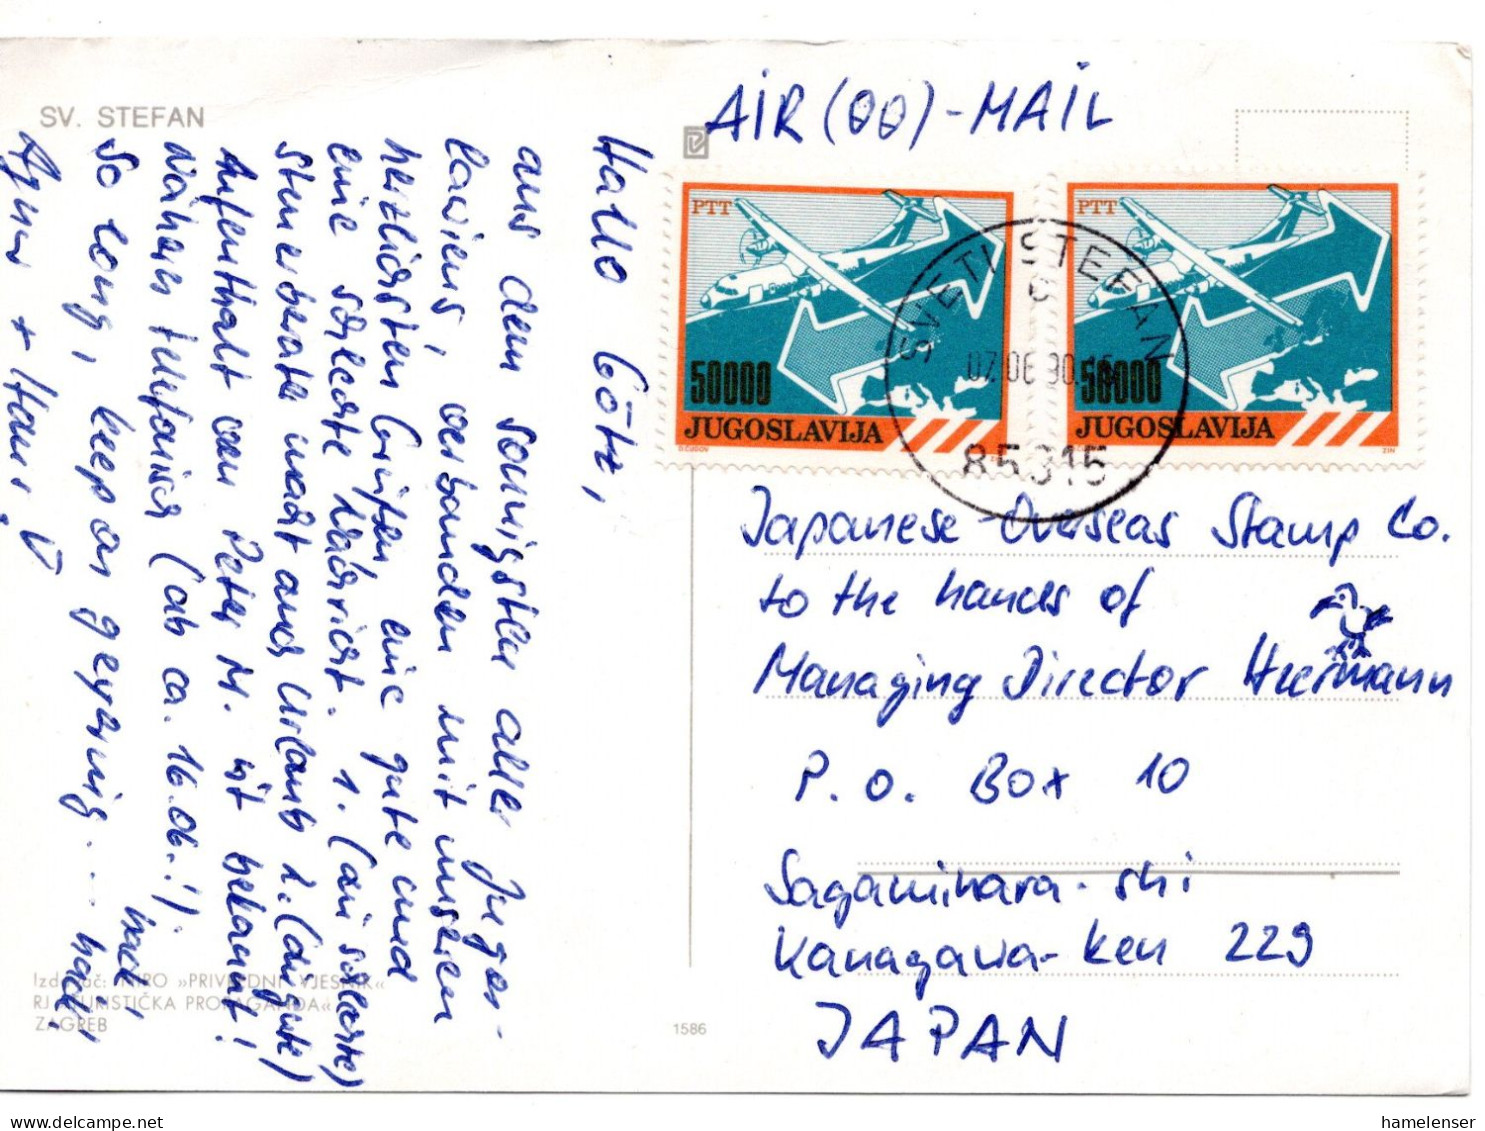 SV. STEFAN
Hallo Götz,
aus dem sonnigsten aller Jugos-
laviens, verbunden mit unseren
herzlichsten Grüßen, eine gute und
eine schlechte Nachricht. 1. (die schlechte)
Steuerberater macht auch Urlaub 2. (die gute)
Aufenthalt von Peter M. ist bekannt!
näheres telefonisch (ab ca. 16.06.!)
So long, keep on geyernig... hack, hack,
+ Hans
Izdavač: NIRO »PRIVREDNI VJESNIK«
RJ »TURISTIČKA PROPAGANDA«
ZAGREB
1586
AIR (00) - MAIL
PTT
50000
JUGOSLAVIJA
D.ČUDOV
PTT
50000
JUGOSLAVIJA
ZIN
SVETI STEFAN
07.06.90.15
85315
Japanese-Overseas Stamp Co.
to the hands of
Managing Director Heermann
P. O. Box 10
Sagamihara-shi
Kanagawa-ken 229
JAPAN
hamelenser